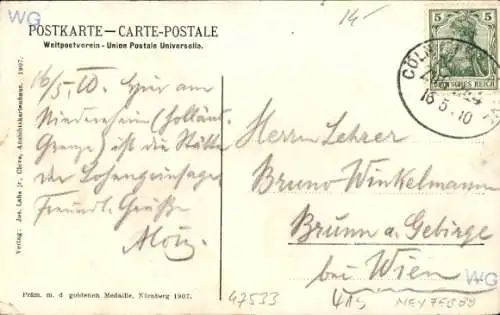 WG
14-
POSTKARTE — CARTE-POSTALE
Weltpostverein - Union Postale Universelle.
5 5
DEUTSCHES REICH
CÖLN
16 5 10
16/5.10. Hier am
Niederrhein (holländ.
Grenze) ist die Stätte
der Lohengrinsage
Freundl. Grüße
Alois.
Herrn Lehrer
Bruno Winkelmann
Brunn a. Gebirge
bei Wien
Verlag: Jos. Lahs jr., Cleve, Ansichtskartenhaus. 1907.
Präm. m. d goldenen Medaille, Nürnberg 1907.
47533
WG